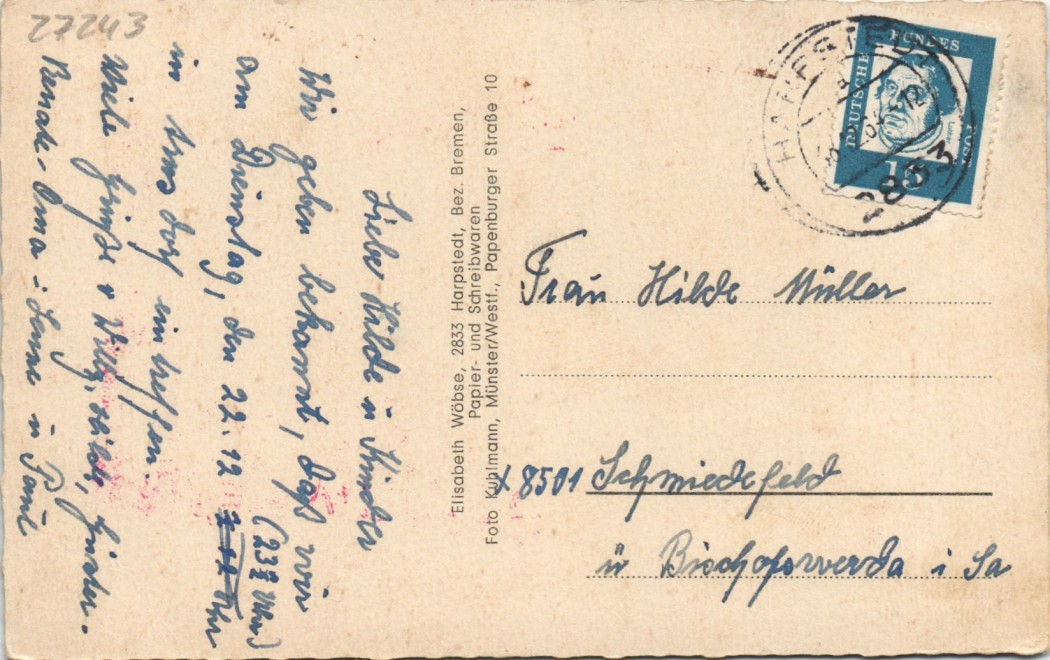 27243
Liebe Hilde u Kinder
Wir geben bekannt, daß wir
am Dienstag, den 22.12 (23 Uhr)
Uhr
in eintreffen.
Viele Grüße v Willy, Hilde, Günter.
Oma - u
Elisabeth Wöbse, 2833 Harpstedt, Bez. Bremen,
Papier- und Schreibwaren
Foto Kuhlmann, Münster/Westf., Papenburger Straße 10
DEUTSCHE BUNDES POST
15
HARPSTEDT
2833
Frau Hilde Müller
x 8501 Schmiedefeld
ü Bischofswerda i Sa